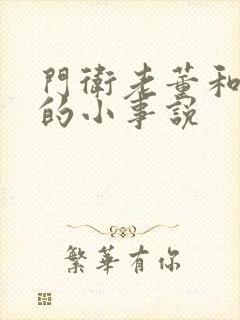 門衛老董和
的小事說
繁華有你